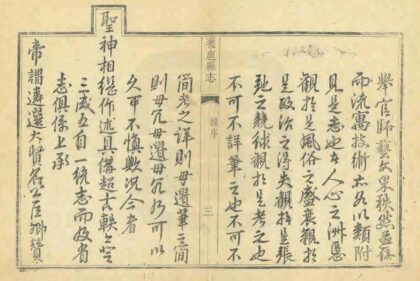 舉官師藝文果秩然條
而流寓技術亦各以類附
見是志也本人心之淑慝
觀於是風俗之盛衰觀於
是政治之得失觀於是張
弛之競絿觀於是考之也
不可不詳筆之也不可不
應縣志
序
三
簡考之詳則毋遺筆之簡
則毋冗毋遺毋冗乃可以
久可不慎歟況今者
聖神相繼作述具備超古軼今登
三咸五自一統志而及省
志俱係上承
帝謂遴選大賢名公臣卿贊